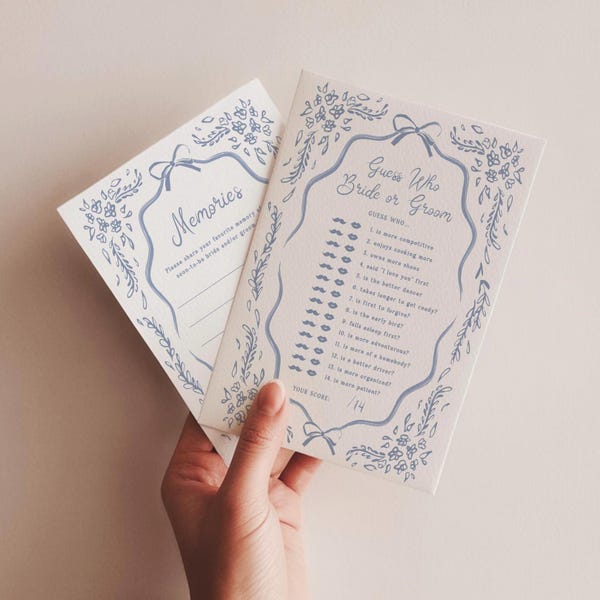 Memories
Please share your favorite memory
soon-to-be bride and/or groom
Guess Who
Bride or Groom
GUESS WHO...
1. is more competitive
2. enjoys cooking more
3. owns more shoes
4. said "i love you" first
5. is the better dancer
6. takes longer to get ready?
7. is first to forgive?
8. is the early bird?
9. falls asleep first?
10. is more adventurous?
11. is more of a homebody?
12. is a better driver?
13. is more organized?
14. is more patient?
YOUR SCORE: /14